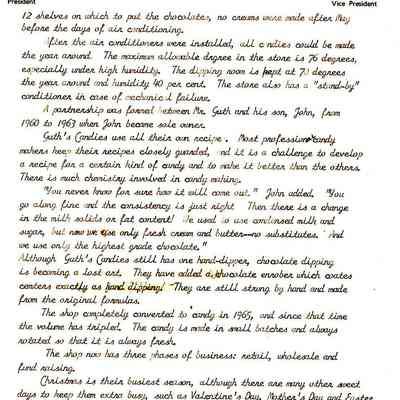 President
Vice President
12 shelves on which to put the chocolates, no creams were made after May
before the days of air conditioning.
After the air conditioners were installed, all candies could be made
the year around. The maximum allowable degree in the store is 76 degrees,
especially under high humidity. The dipping room is kept at 70 degrees
the year around and humidity 40 per cent. The store also has a "stand-by"
conditioner in case of mechanical failure.
A partnership was formed between Mr. Guth and his son, John, from
1960 to 1963 when John became sole owner.
Guth's Candies use all their own recipe. Most professional candy
makers keep their recipes closely guarded, and it is a challenge to develop
a recipe for a certain kind of candy and to make it better than the others.
There is much chemistry involved in candy making.
"You never know for sure how it will come out." John added. "You
go along fine and the consistency is just right. Then there is a change
in the milk solids or fat content! We used to use condensed milk and
sugar, but now we use only fresh cream and butter—no substitutes. And
we use only the highest grade chocolate."
Although Guth's Candies still has one hand-dipper, chocolate dipping
is becoming a lost art. They have added a chocolate enrober which coats
centers exactly as hand dipping! They are still strung by hand and made
from the original formulas.
The shop completely converted to candy in 1965, and since that time
the volume has tripled. The candy is made in small batches and always
rotated so that it is always fresh.
The shop now has three phases of business: retail, wholesale and
find raising.
Christmas is their busiest season, although there are many other sweet
days to keep them extra busy, such as Valentine's Day, Mother's Day and Easter